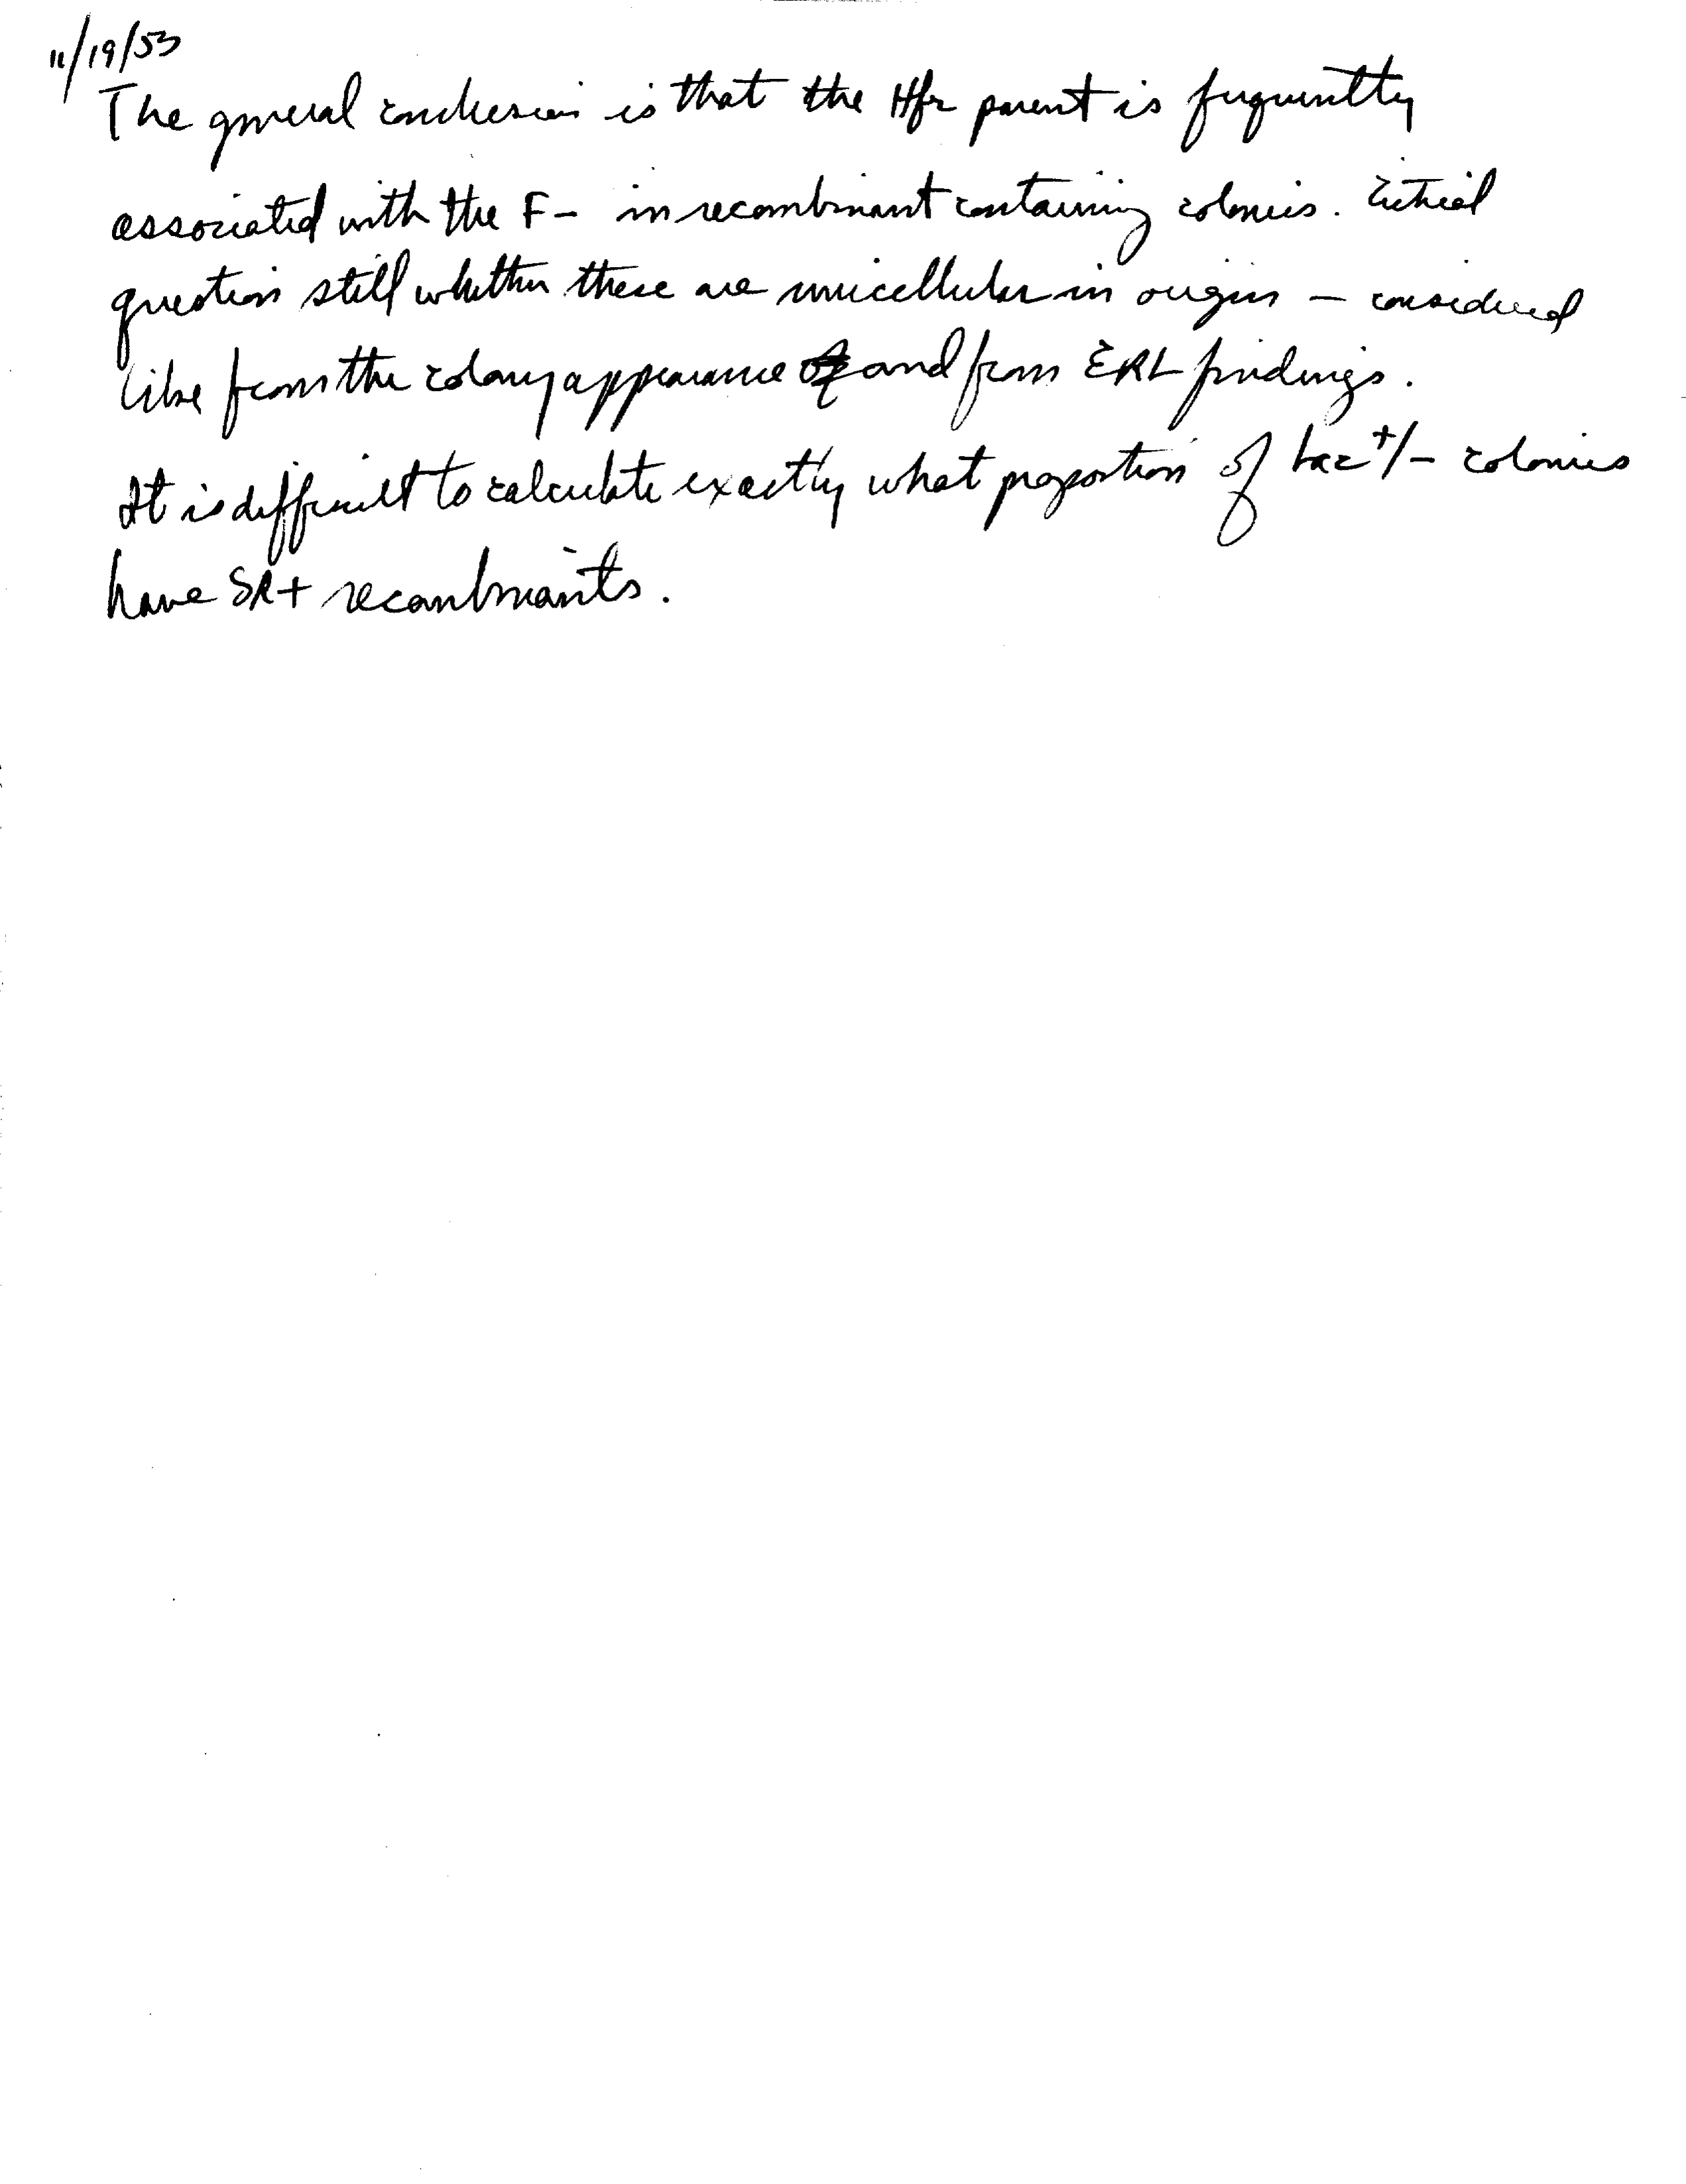 11/19/53
The general conclusion is that the Hfr parent is frequently
associated with the F- in recombinant containing colonies. Critical
question still whether these are unicellular in origin – considered
from the colony appearance and from ERL findings.
It is difficult to calculate exactly what proportion of Lac+/- colonies
have SR+ recombinants.